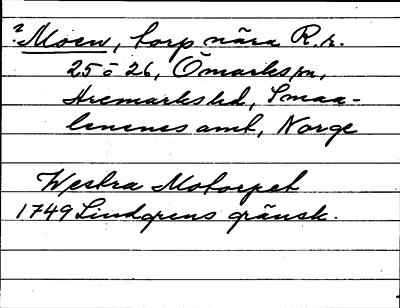 ? Moen, torp nära R.r.
25 o 26, Ömarks sn,
Aremarks hd, Smaa-
lenenes amt, Norge
Westra Motorpet
1749 Lindgrens gränsk.